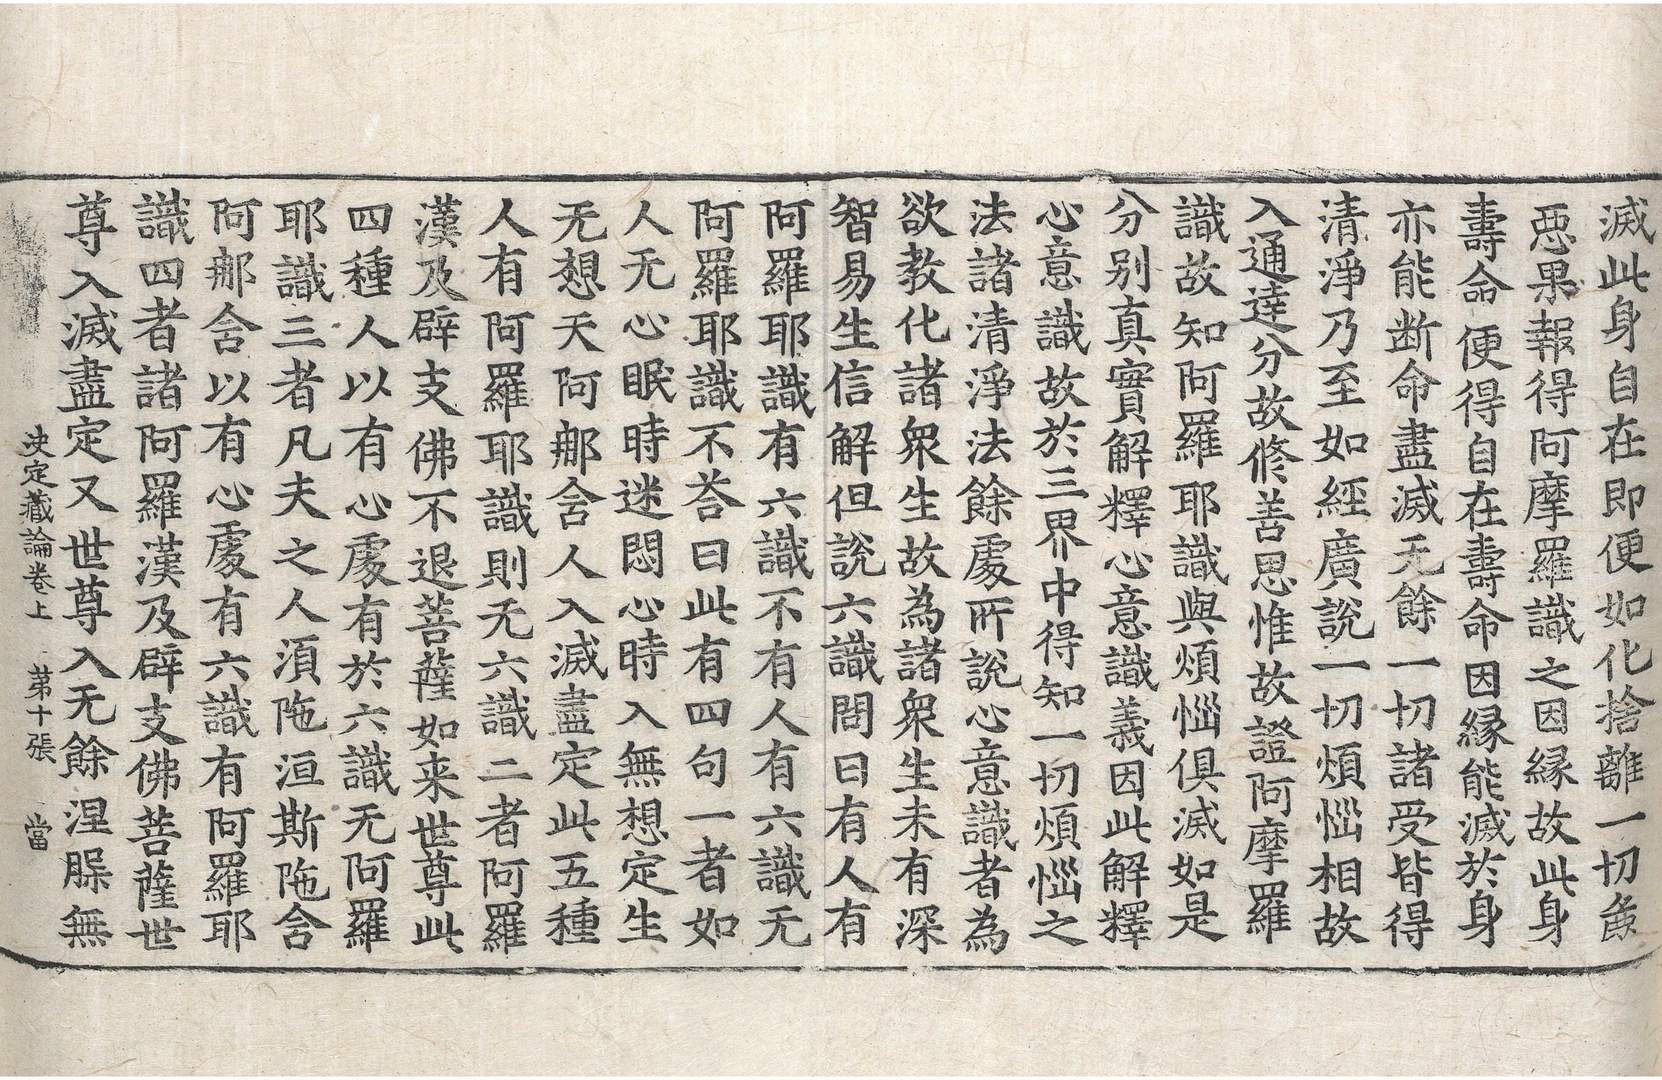 滅此身自在即便如化捨離一切𩲸
惡果報得阿摩羅識之因縁故此身
壽命便得自在壽命因縁能滅於身
亦能断命盡滅无餘一切諸受皆得
清淨乃至如經廣説一切煩惱相故
入通達分故修善思惟故證阿摩羅
識故知阿羅耶識與煩惱俱滅如是
分别真實解釋心意識義因此解釋
心意識故於三界中得知一切煩惱之
法諸清淨法餘處所説心意識者為
欲教化諸衆生故為諸衆生未有深
智易生信解但説六識問曰有人有
阿羅耶識有六識不有人有六識无
阿羅耶識不荅曰此有四句一者如
人无心眠時迷悶心時入無想定生
无想天阿那含人入滅盡定此五種
人有阿羅耶識則无六識二者阿羅
漢及辟支佛不退菩薩如来世尊此
四種人以有心處有於六識无阿羅
耶識三者凡夫之人湏陁洹斯陁含
阿那含以有心處有六識有阿羅耶
識四者諸阿羅漢及辟支佛菩薩世
尊入滅盡定又世尊入无餘涅槃無
决定藏論卷上 第十張 當